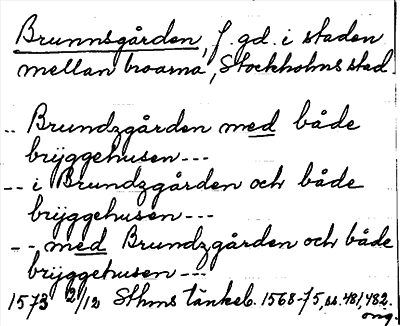 Brunnsgården, f. gd. i staden
mellan broarna, Stockholms stad.
-- Brundzgården med både
bryggehusen ---
-- i Brundzgården och både
bryggehusen ---
-- med Brundzgården och både
bryggehusen ---
1573 2/12 Sthms tänkeb. 1568-75, ss. 481, 482.
orig.